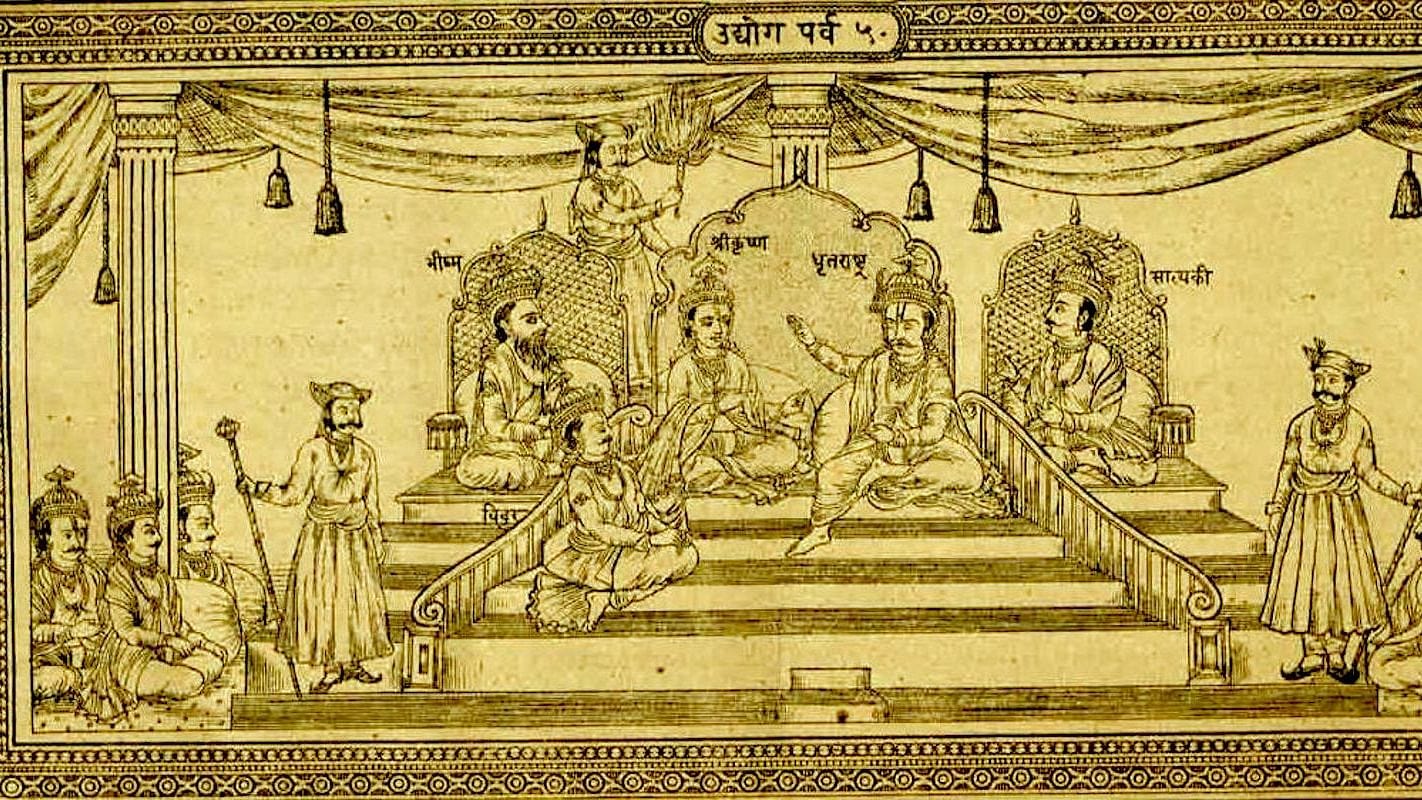 उद्योग पर्व ५.
श्रीकृष्ण
भीष्म
धृतराष्ट्र
सात्यकी
विदुर